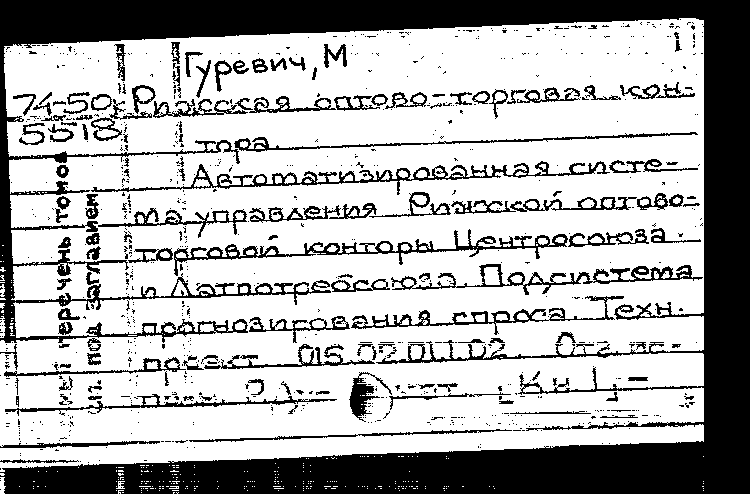 1
Гуревич, М
74-50к Рижская оптово-торговая кон-
5518 тора.
Автоматизированная систе-
ма управления Рижской оптово-
торговой конторы Центросоюза
и Латпотребсоюза. Подсистема
прогнозирования спроса. Техн.
проект 015.02.01.1.02. Отв. ис-
[Кн 1] -
перечень томов
см. под заглавием.